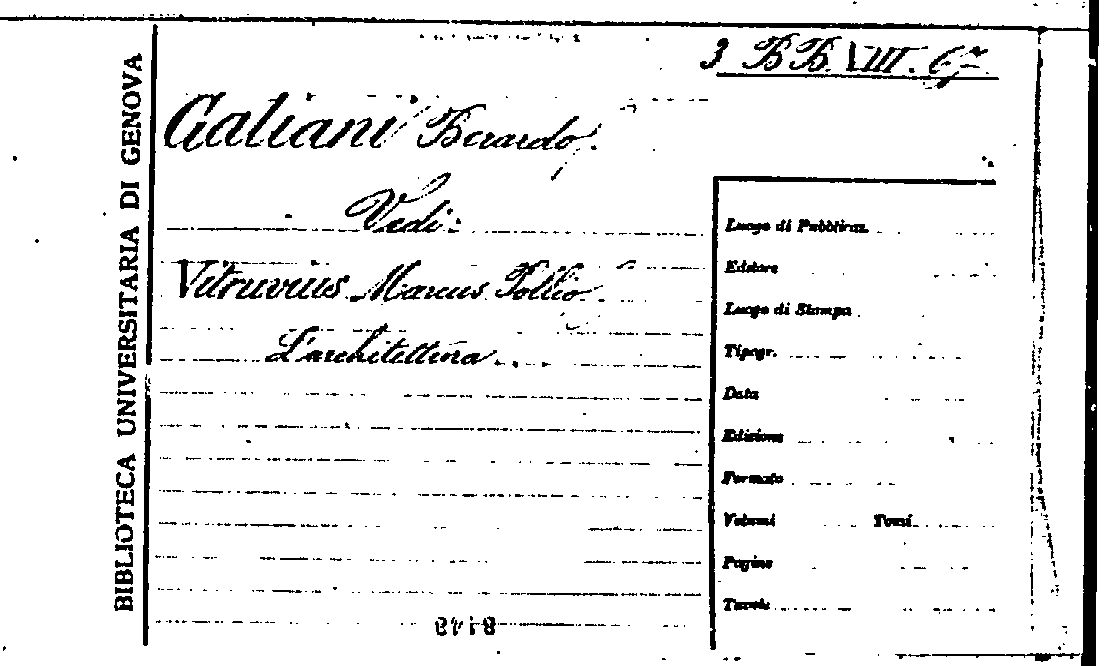 3 BB. VIII. 67
Galiani Berardo.
Vedi:
Vitruvius Marcus Pollio.
L'architettura.
BIBLIOTECA UNIVERSITARIA DI GENOVA
Luogo di Pubblicaz.
Editore
Luogo di Stampa
Tipogr.
Data
Edizione
Formato
Volumi Tomi
Pagine
Tavole